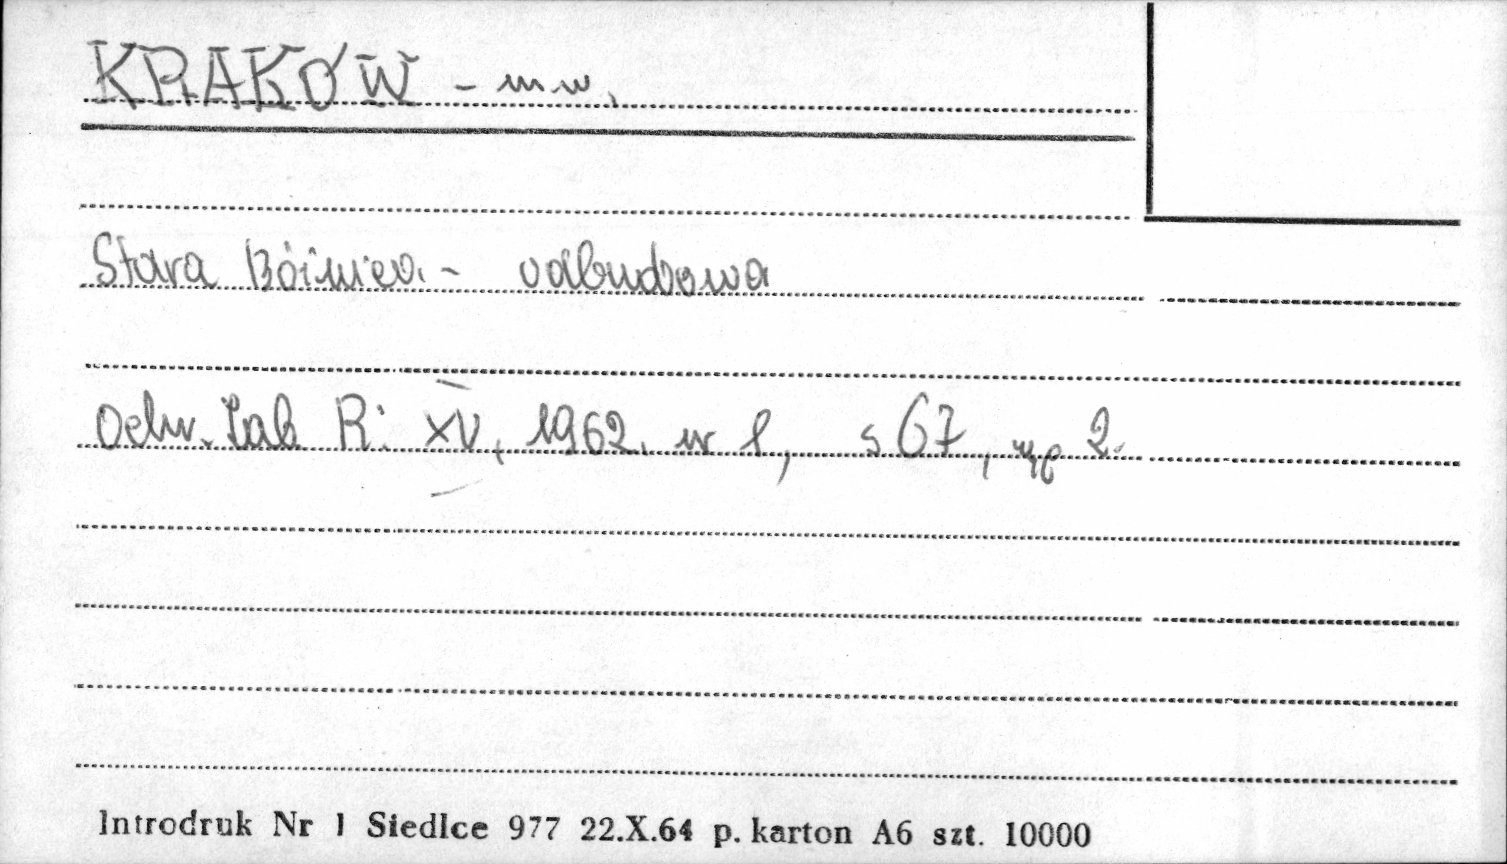 KRAKÓW - m w.
Stara Bóżnica - odbudowa
Ochr. Zab R: XV, 1962. nr 1, s 67, 2.
Introdruk Nr 1 Siedlce 977 22.X.64 p. karton A6 szt. 10000